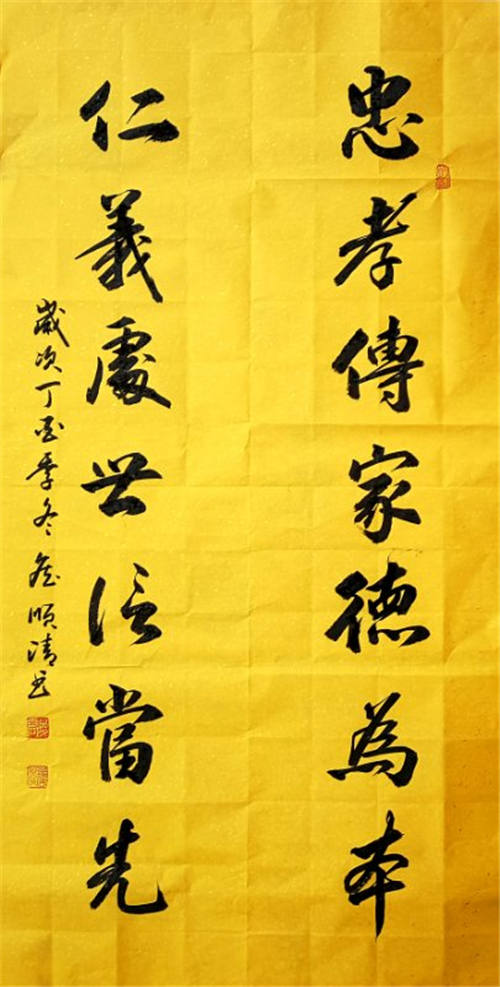 忠孝傳家德為本
仁義處世信當先
歲次丁酉季冬 詹順清書